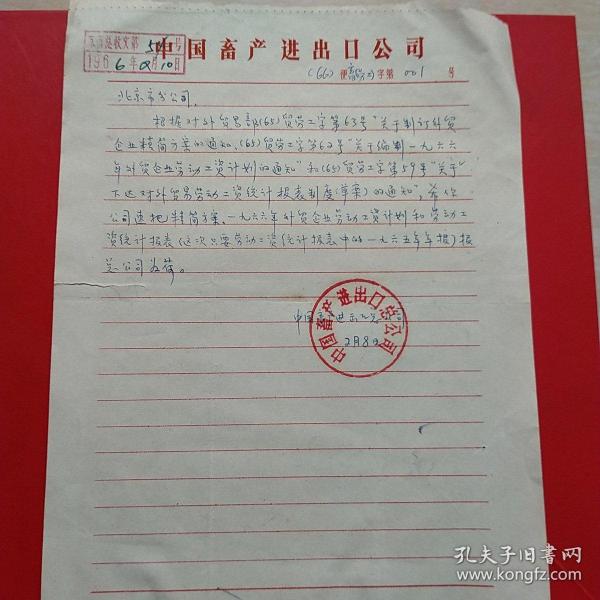 中国畜产进出口公司
京畜进收文第50号
1966年2月10日
(66)便畜劳工字第001号
北京市分公司:
根据对外贸易部(65)贸劳工字第63号“关于制订外贸
企业精简方案的通知、(65)贸劳工字第62号“关于编制一九六六
年外贸企业劳动工资计划的通知”和(65)贸劳工字第59号“关于
下达对外贸易劳动工资统计报表制度(草案)的通知”,希你
公司速把精简方案、一九六六年外贸企业劳动工资计划和劳动工
资统计报表(这次只要劳动工资统计报表中的一九六五年年报)报
总公司为荷。
中国畜产进出口总公司
2月8日
中国畜产进出口总公司
孔夫子旧书网
www.kongfz.com